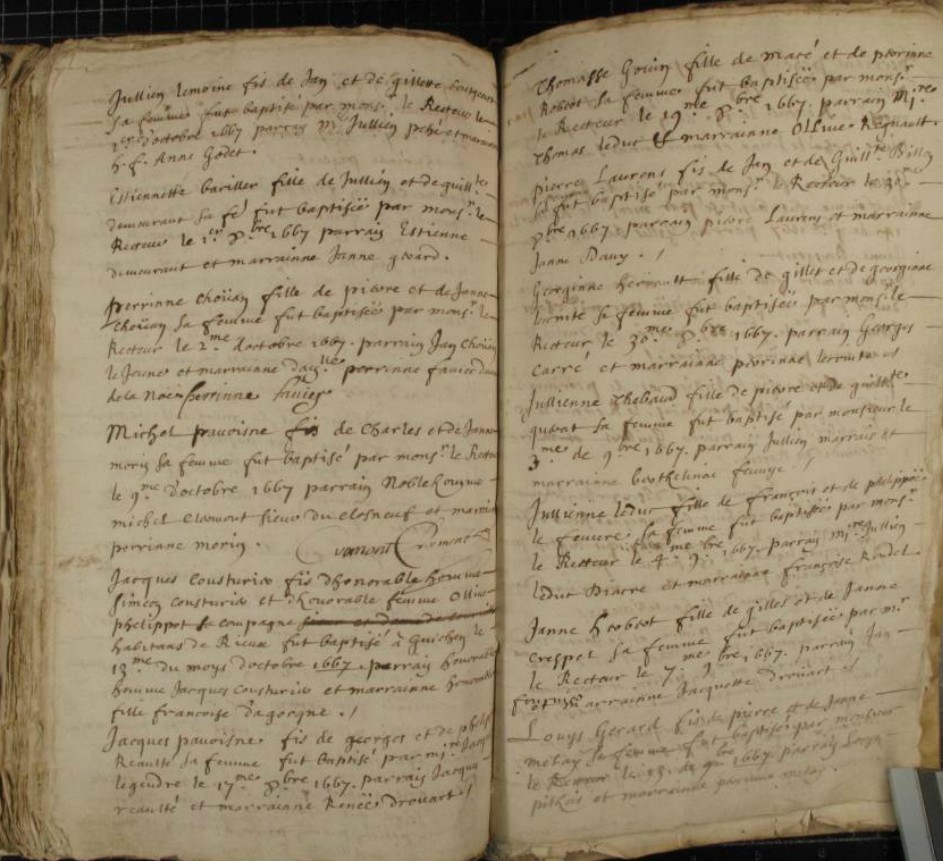 Jullien lemoine fis de Jan et de gillette
sa femme fut baptisé par mons.r le Recteur le
d'octobre 1667 parrain M.re Jullien
h. f. Anne Godet.
Estiennette bariller fille de Jullien et de guill.tte
demeurant sa fe. fut baptiséé par mons.r le
Recteur le 1.er 8.bre 1667 parrain Estienne
demeurant et marrainne Janne
Perrinne choüan fille de pierre et de Janne
choüan sa femme fut baptiséé par mons.r le
Recteur le 2.me doctobre 1667. parrain Jan choüan
le Jeune et marrainne perrinne
de la Noë perrinne
Michel pavoisne fis de Charles et de Janne
morin sa femme fut baptisé par mons.r le Recteur
le 9.me d'octobre 1667 parrain Noble homme
michel sieur du closneuf et
perrinne morin.
Jacques Cousturie fis dhonorable homme
Simeon cousturie et dhonorable femme Ollive
phelippot sa compagne
habitans de Rieux fut baptisé à Guichen le
13.me du moys doctobre 1667. parrain honorable
homme Jacques cousturie et marrainne honorable
fille francoise dagorgne. ./
Jacques pavoisne fis de georges et de
Reaulté sa femme fut baptisé par m.re Jacques
legendre le 17.me 8.bre 1667. parrain Jacques
reaulté et marrainne Renéé drouart ./
Thomasse Gouin fille de macé et de perrinne
Robert sa femme fut baptiséé par mons.r
le Recteur le 19.me 8.bre 1667. parrain M.re
Thomas leduc & marrainne Ollive Regnault
pierre Laurens fis de Jan et de Guill.tte Billy
fut baptisé par mons.r le Recteur le
8.bre 1667. parrain pierre Laurens et marrainne
Janne Davy. ./
Georginne hervault fille de gillet et de georginne
sa femme fut baptiséé par mons.r le
Recteur le 30.me 8.bre 1667. parrain Georges
Carré et marrainne perrinne ./
Jullienne Thebaud fille de pierre et de guill.tte
sa femme fut baptisé par monsieur le
3.me de 9.bre 1667. parrain Jullien marrais et
marrainne ./
Jullienne leduc fille de françois et de phelippe
le feuvre sa femme fut baptiséé par mons.r
le Recteur le 4.me 9.bre 1667. parrain m.re Jullien
leduc Diacre et marrainne françoise
Janne fille de gilles et de Janne
Crespel sa femme fut baptiséé par m.r
le Recteur le 7.me 9.bre 1667. parrain Jan
marrainne Jacquette drouart ./
Louys Gerard fis de pierre et de Janne
metay sa femme fut baptisé par monsieur
le Recteur le 1667. parrain Louys
et marrainne perrinne metay.